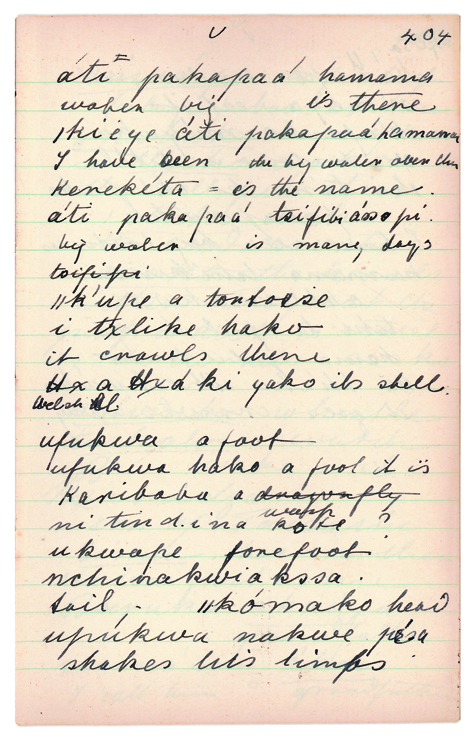 404
áti = pakapaá hamama
water big is there
/kiéye áti pakapaá hamama
I have seen the big water over there
Kerekéta = is the name.
áti pakapaá tsifibiássopí.
big water is many days
tsififi
//k'upe a tortoise
i txlike hako
it crawls there
yako its shell.
Welsh ll
ufukwa a foot
ufukwa hako a foot it is
Karibaba a dragonfly
wasp
ni tind.ina kote ?
ukwape forefoot
nchinakwiakssa.
tail - //kómako head
upúkwa nakwe pésa
shakes his limbs